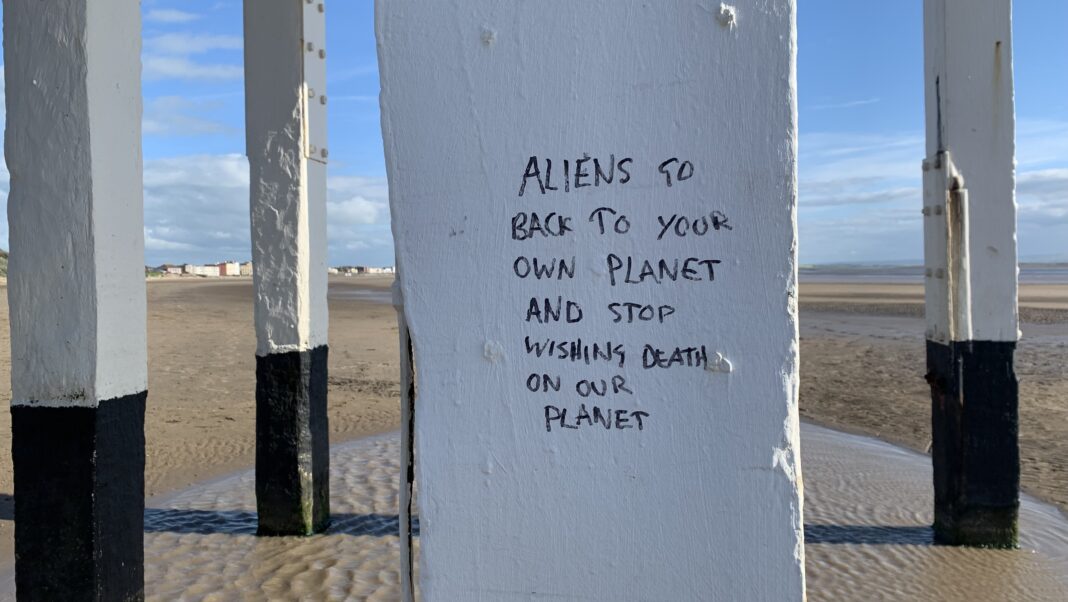 ALIENS GO
BACK TO YOUR
OWN PLANET
AND STOP
WISHING DEATH
ON OUR
PLANET